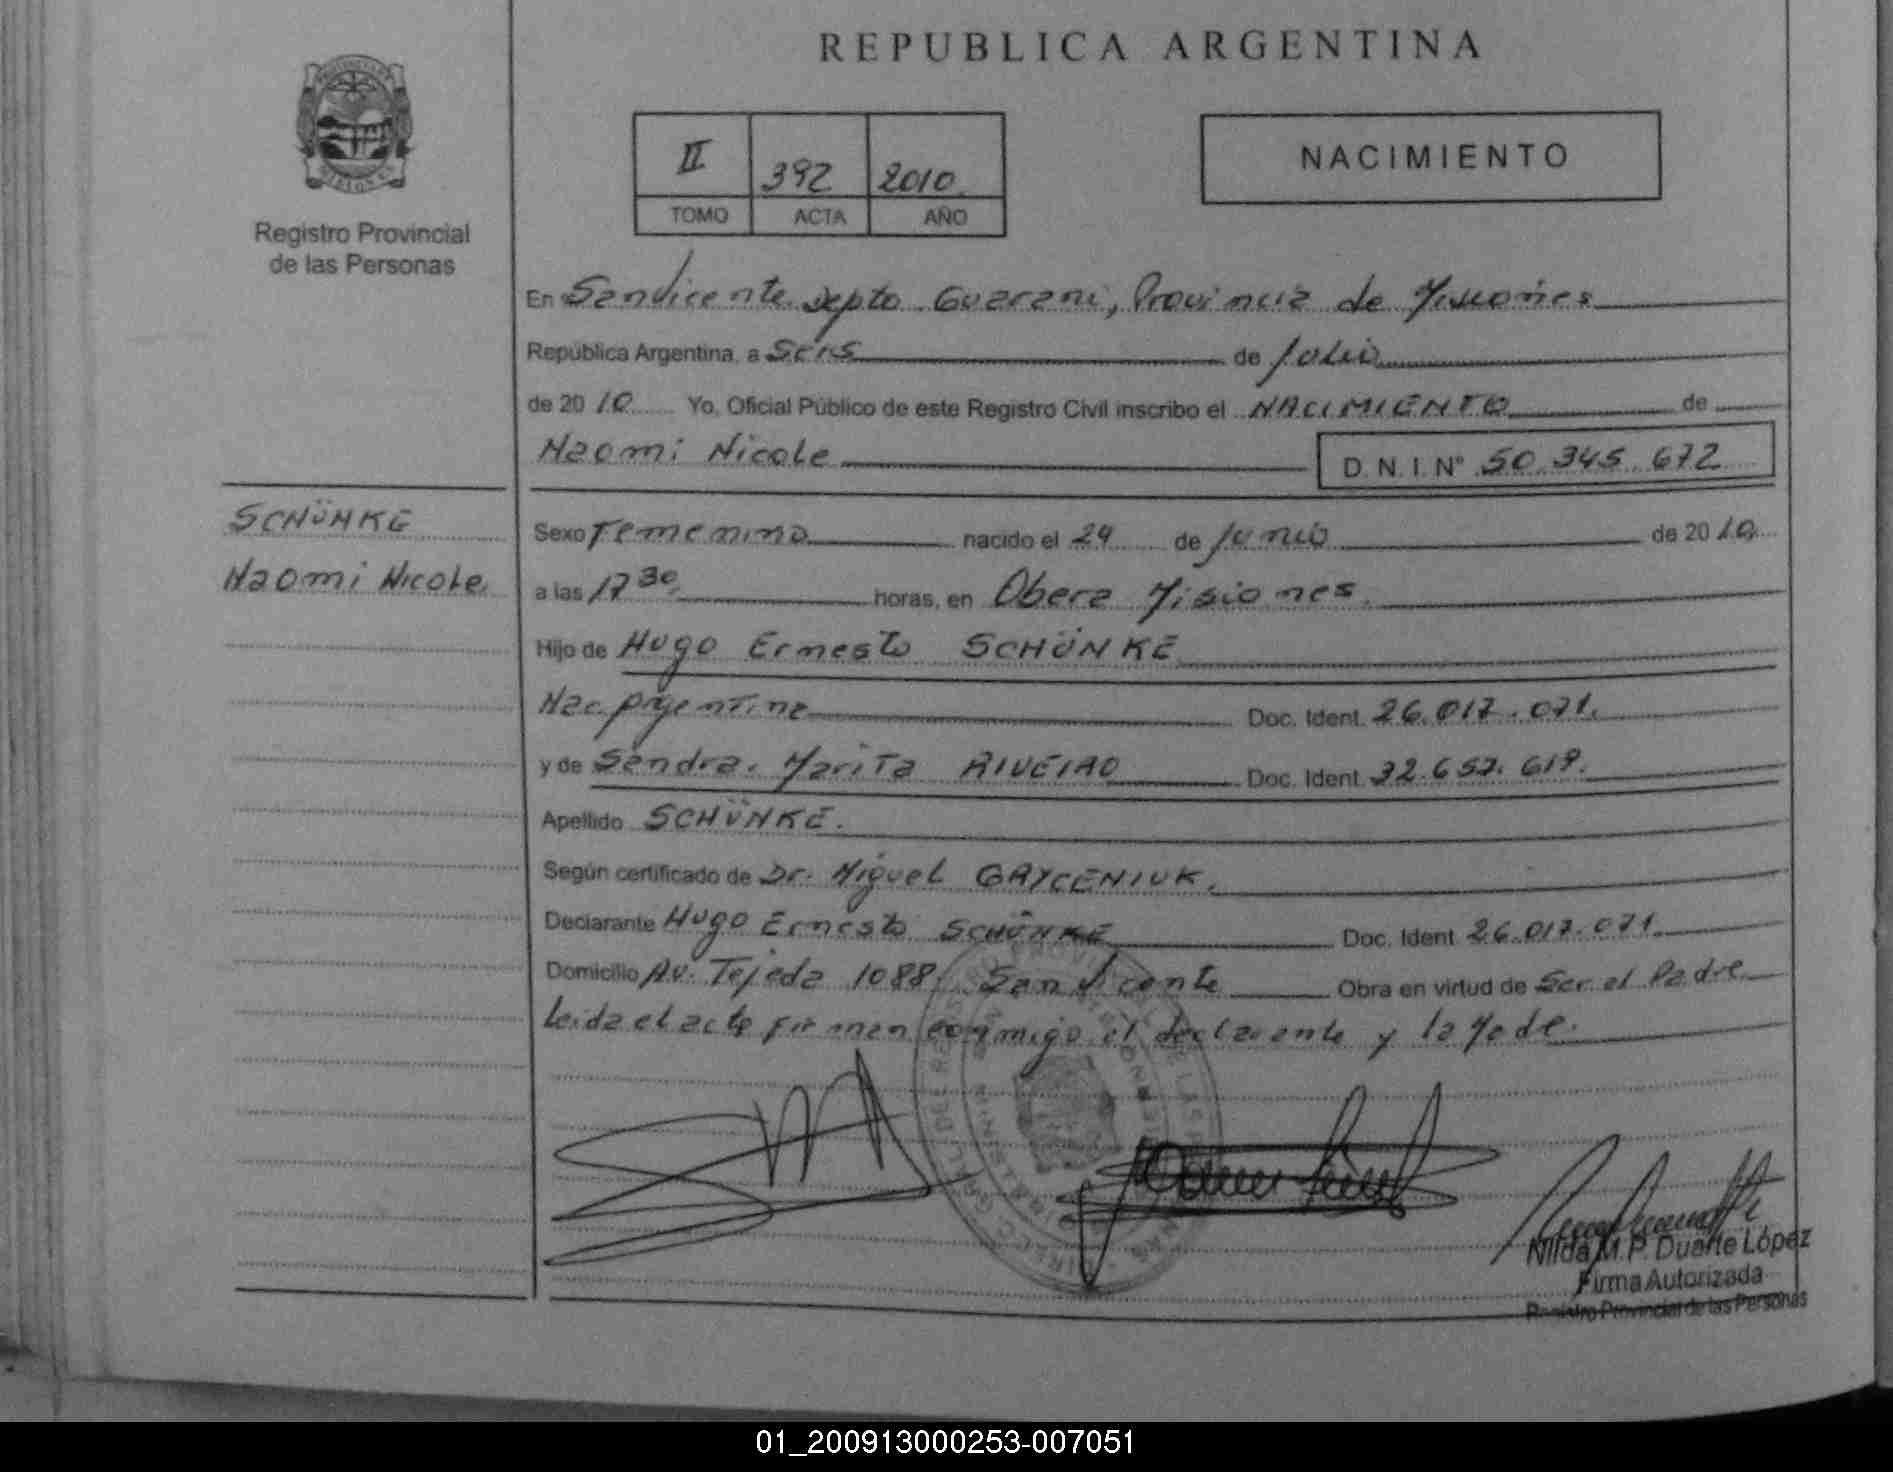 REPUBLICA ARGENTINA
II 392 2010
TOMO ACTA AÑO
NACIMIENTO
Registro Provincial
de las Personas
En San Vicente Depto Guarani, Provincia de Misiones
República Argentina, a Seis de Julio
de 2010 Yo, Oficial Público de este Registro Civil inscribo el NACIMIENTO de
Naomi Nicole D. N. I. N° 50.345.672
SCHÜNKE
Naomi Nicole
Sexo Femenino nacido el 24 de Junio de 2010
a las 17 30 horas, en Obera Misiones.
Hijo de Hugo Ernesto SCHÜNKE
Nac. Argentina Doc. Ident. 26.017.071.
y de Sandra Marita RIVEIRO Doc. Ident. 32.657.619.
Apellido SCHÜNKE.
Según certificado de Dr. Miguel GRYCENIUK.
Declarante Hugo Ernesto SCHÜNKE Doc. Ident. 26.017.071.
Domicilio Av. Tejeda 1088 San Vicente Obra en virtud de Ser el Padre
Leida el acta firman conmigo el declarante y la Made.
Nilda M.P. Duarte López
Firma Autorizada
Registro Provincial de las Personas
01_200913000253-007051